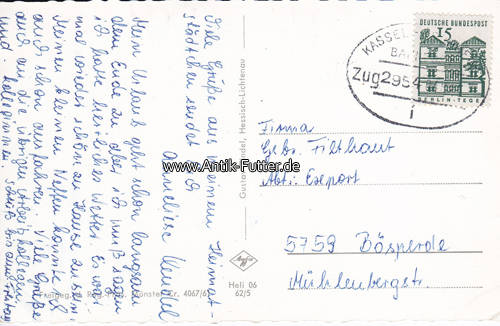 Viele Grüße aus meinem Heimat-
städtchen sendet Anneliese
Mein Urlaub geht schon langsam
dem Ende zu aber ich muß sagen
ich hatte herrliches Wetter. Es war
mal wieder schön zu Hause zu sein
Meinen kleinen Neffen konnte ich
auch schon ausfahren. Viele Grüße
auch an die übrigen Arbeitskollegen
und -kolleginnen.
Gustav Mandel, Hessisch-Lichtenau
4067/61
Agfa
Heli 06
62/5
www.Antik-Futter.de
DEUTSCHE BUNDESPOST
15
BERLIN-TEGEL
KASSEL
BA
Zug2954
i
Firma
Gebr. Filthaut
Abt.: Export
5759 Bösperde
Mühlenbergstr.